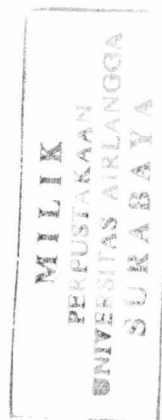 MILIK
PERPUSTAKAAN
UNIVERSITAS AIRLANGGA
SURABAYA